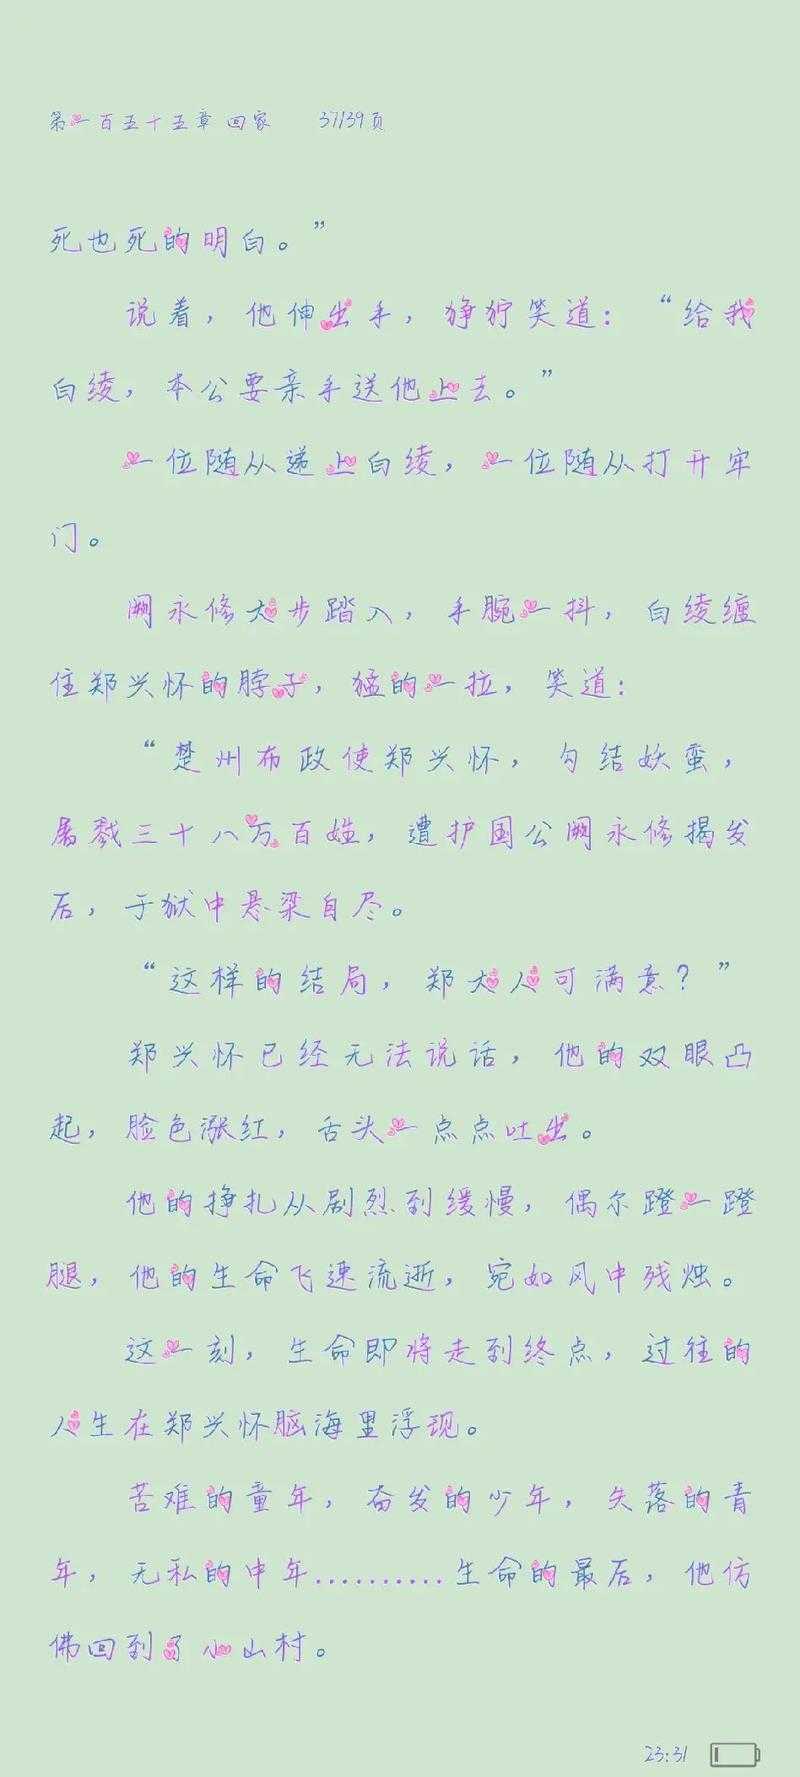 第一百五十五章 回家 37/39页
死也死的明白。”
说着，他伸出手，狰狞笑道：“给我
白绫，本公要亲手送他上去。”
一位随从递上白绫，一位随从打开牢
门。
阙永修大步踏入，手腕一抖，白绫缠
住郑兴怀的脖子，猛的一拉，笑道：
“楚州布政使郑兴怀，勾结妖蛮，
屠戮三十八万百姓，遭护国公阙永修揭发
后，于狱中悬梁自尽。
“这样的结局，郑大人可满意？”
郑兴怀已经无法说话，他的双眼凸
起，脸色涨红，舌头一点点吐出。
他的挣扎从剧烈到缓慢，偶尔蹬一蹬
腿，他的生命飞速流逝，宛如风中残烛。
这一刻，生命即将走到终点，过往的
人生在郑兴怀脑海里浮现。
苦难的童年，奋发的少年，失落的青
年，无私的中年..........生命的最后，他仿
佛回到了小山村。
23:31